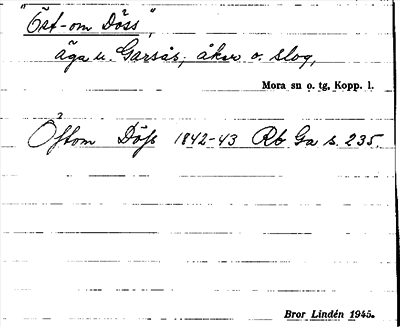 "Öst-om Döss",
äga u. Garsås; åker o. slog,
Mora sn o. tg, Kopp. l.
Östom Döss 1842-43 Rb Ga s. 235.
Bror Lindén 1945.